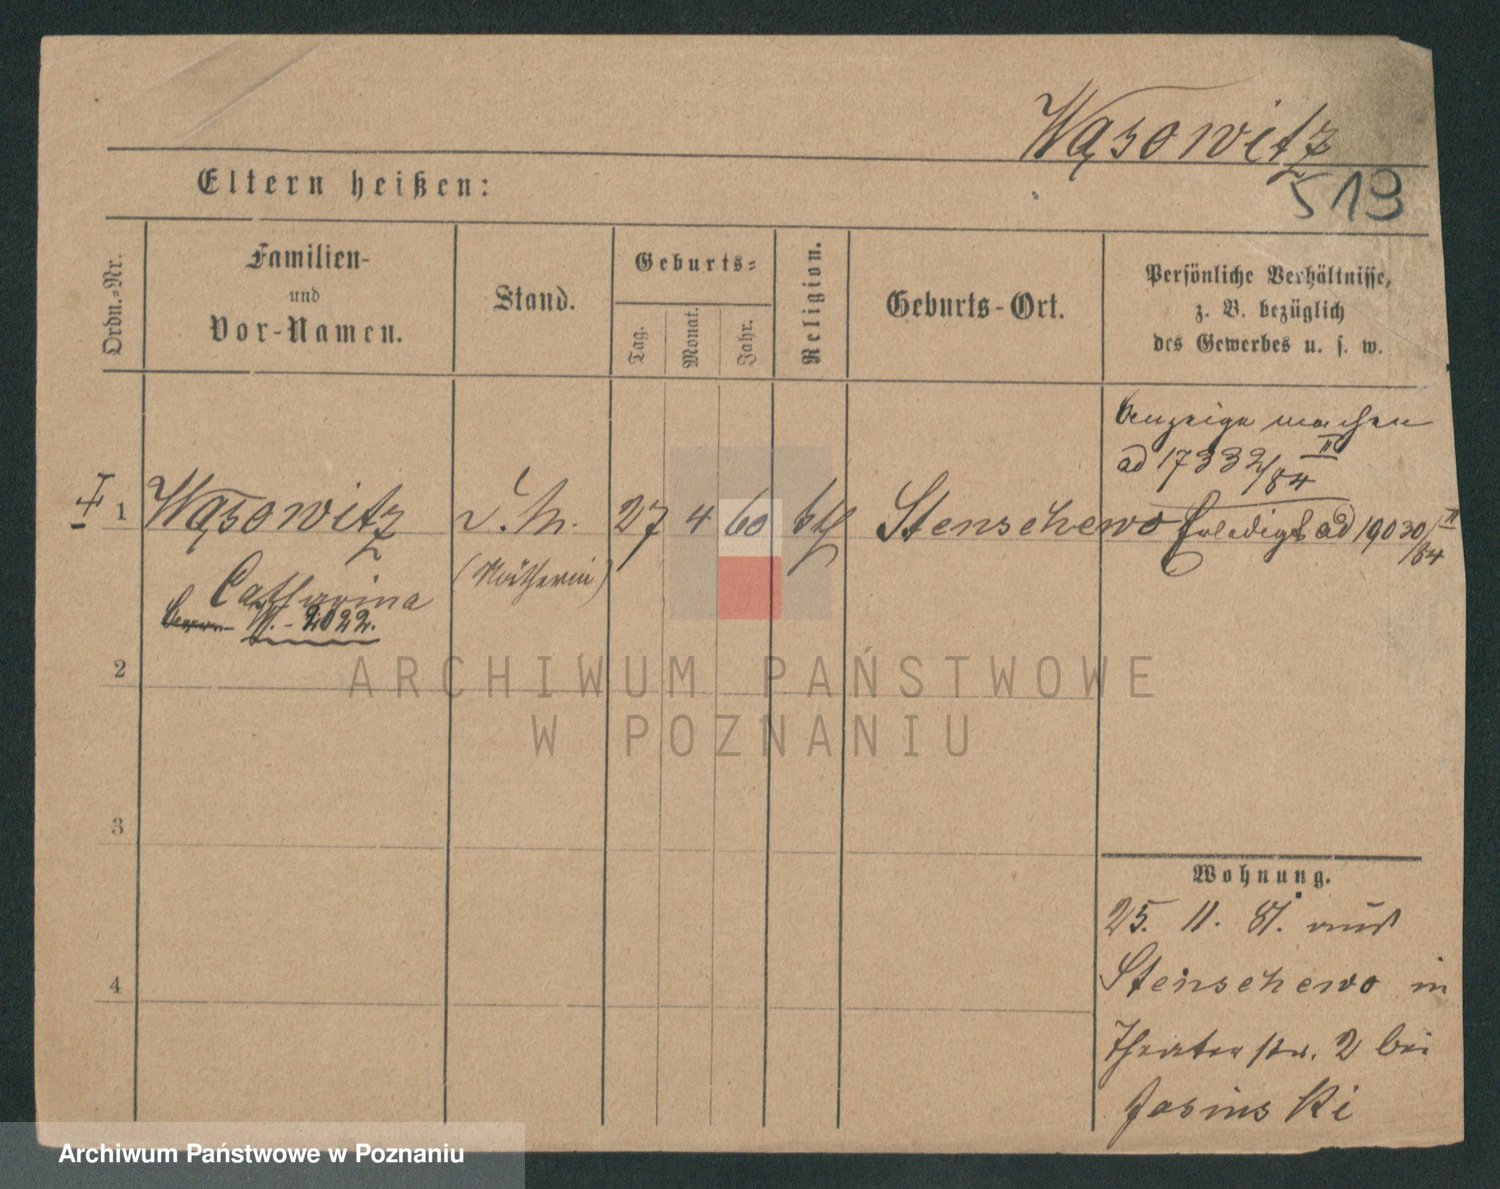 Wąsowitz
519
Eltern heißen:
Ordn.-Nr.
Familien-
und
Vor-Namen.
Stand.
Geburts-
Tag.
Monat.
Jahr.
Religion.
Geburts-Ort.
Persönliche Verhältnisse,
z. B. bezüglich
des Gewerbes u. s. w.
Anzeige machen
ad 17332/84 II
1 Wąsowitz 27 4 60 Stenschewo Erledigt ad 19030/84 II
Catharina (Näherin)
VI. - 2022.
2
3
4
Wohnung.
25. 11. 81. aus
Stenschewo in
Theaterstr. 2 bei
Jasinski
ARCHIWUM PAŃSTWOWE
W POZNANIU
Archiwum Państwowe w Poznaniu